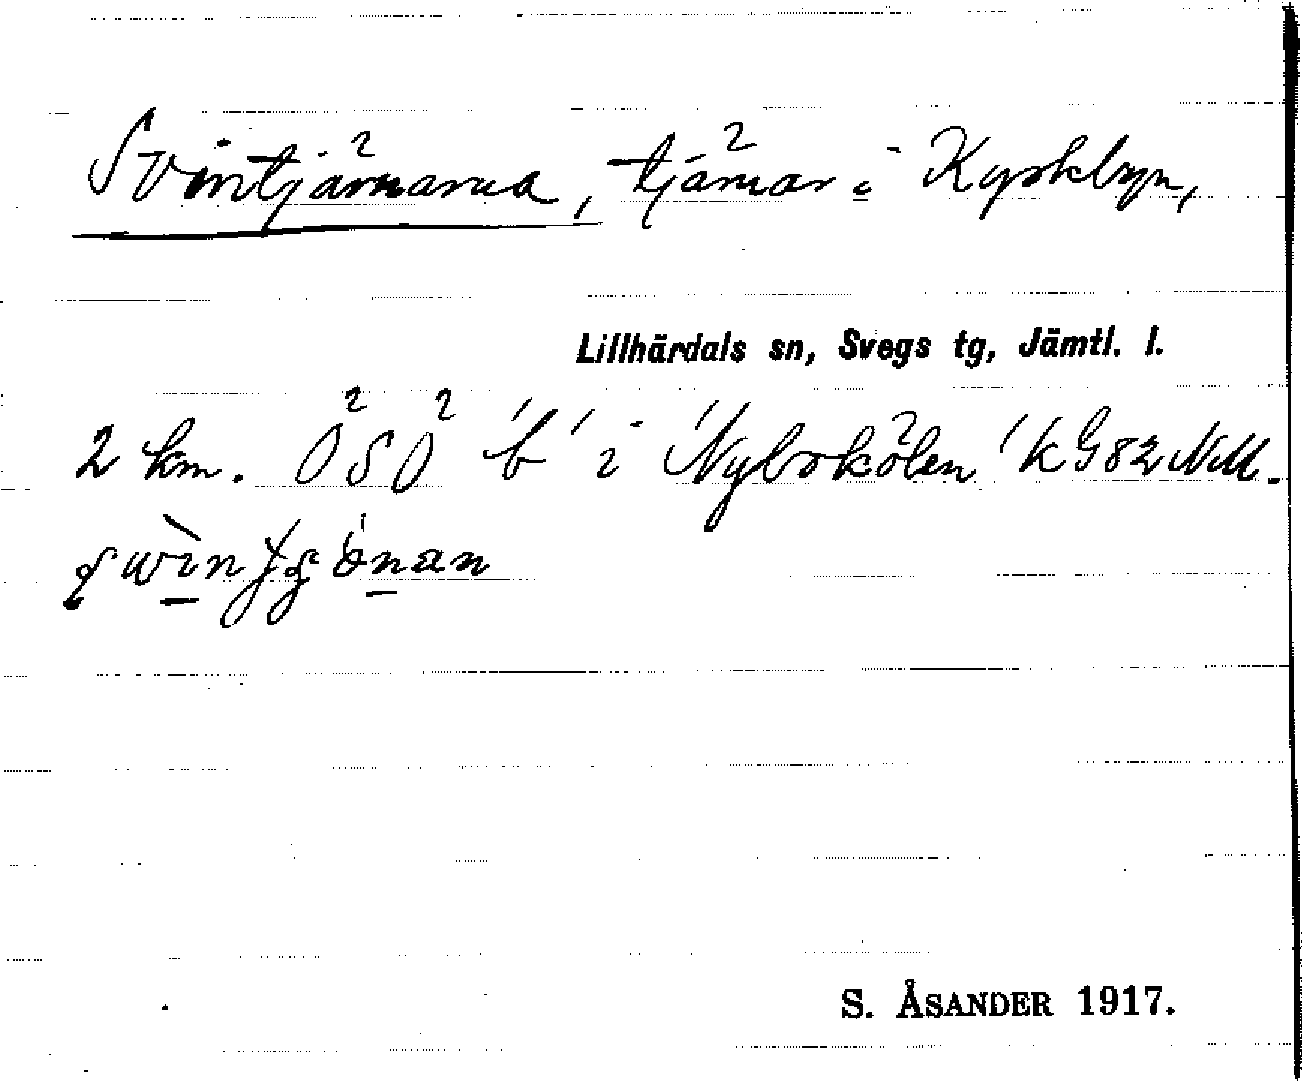 Svintjärnarna, tjärnar i Kyrkbyn,
Lillhärdals sn, Svegs tg, Jämtl. l.
2 km. ÖSÖ 'b' i 'Nybokölen' k G 82 NM.
S. ÅSANDER 1917.